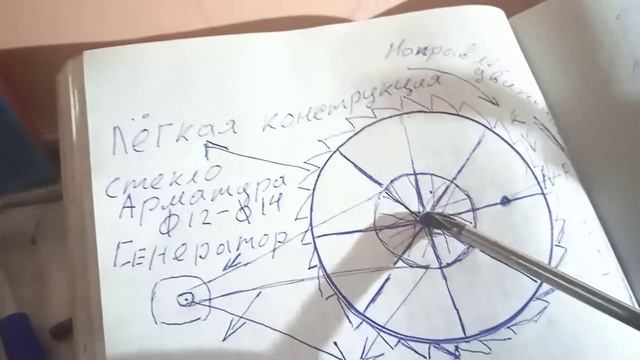 Направ
Лёгкая конструкция
стекло
Арматура
Ф12-Ф14
Генератор